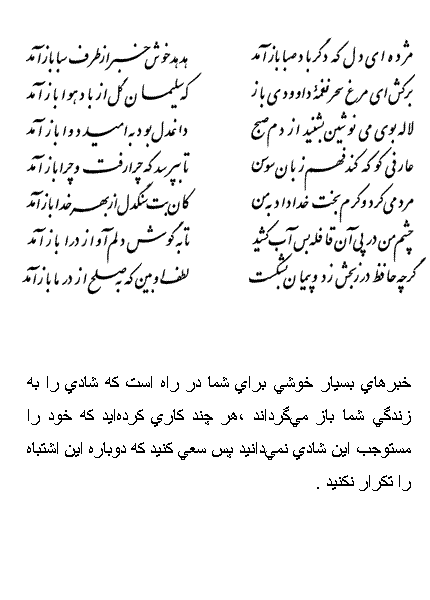 مژده ای دل که دگر باد صبا باز آمد هدهد خوش خبر از طرف سبا باز آمد
برکش ای مرغ سحر نغمهٔ داوودی باز که سلیمان گل از باد هوا باز آمد
لاله بوی می نوشین بشنید از دم صبح داغ دل بود به امید دوا باز آمد
عارفی کو که کند فهم زبان سوسن تا بپرسد که چرا رفت و چرا باز آمد
مردمی کرد و کرم بخت خداداد به من کان بت سنگدل از بهر خدا باز آمد
چشم من در پی آن قافله بس آب کشید تا به گوش دلم آواز درا باز آمد
گرچه حافظ در رنجش زد و پیمان بشکست لطف او بین که به صلح از در ما باز آمد
خبرهاي بسيار خوشي براي شما در راه است كه شادي را به
زندگي شما باز مي‌گرداند ،هر چند كاري كرده‌ايد كه خود را
مستوجب اين شادي نمي‌دانيد پس سعي كنيد كه دوباره اين اشتباه
را تكرار نكنيد .